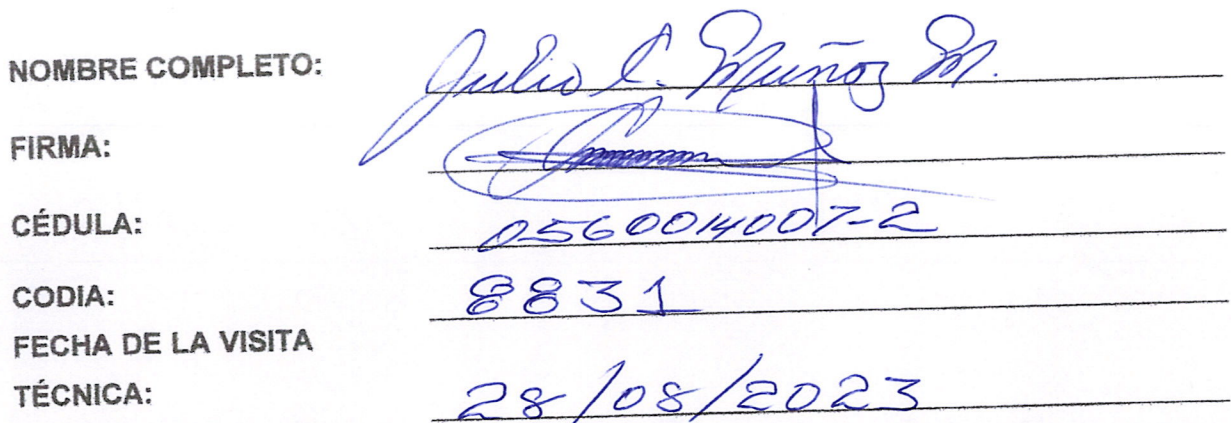 NOMBRE COMPLETO: Julio C. Muñoz M.
FIRMA:
CÉDULA: 0560014007-2
CODIA: 8831
FECHA DE LA VISITA
TÉCNICA: 28/08/2023